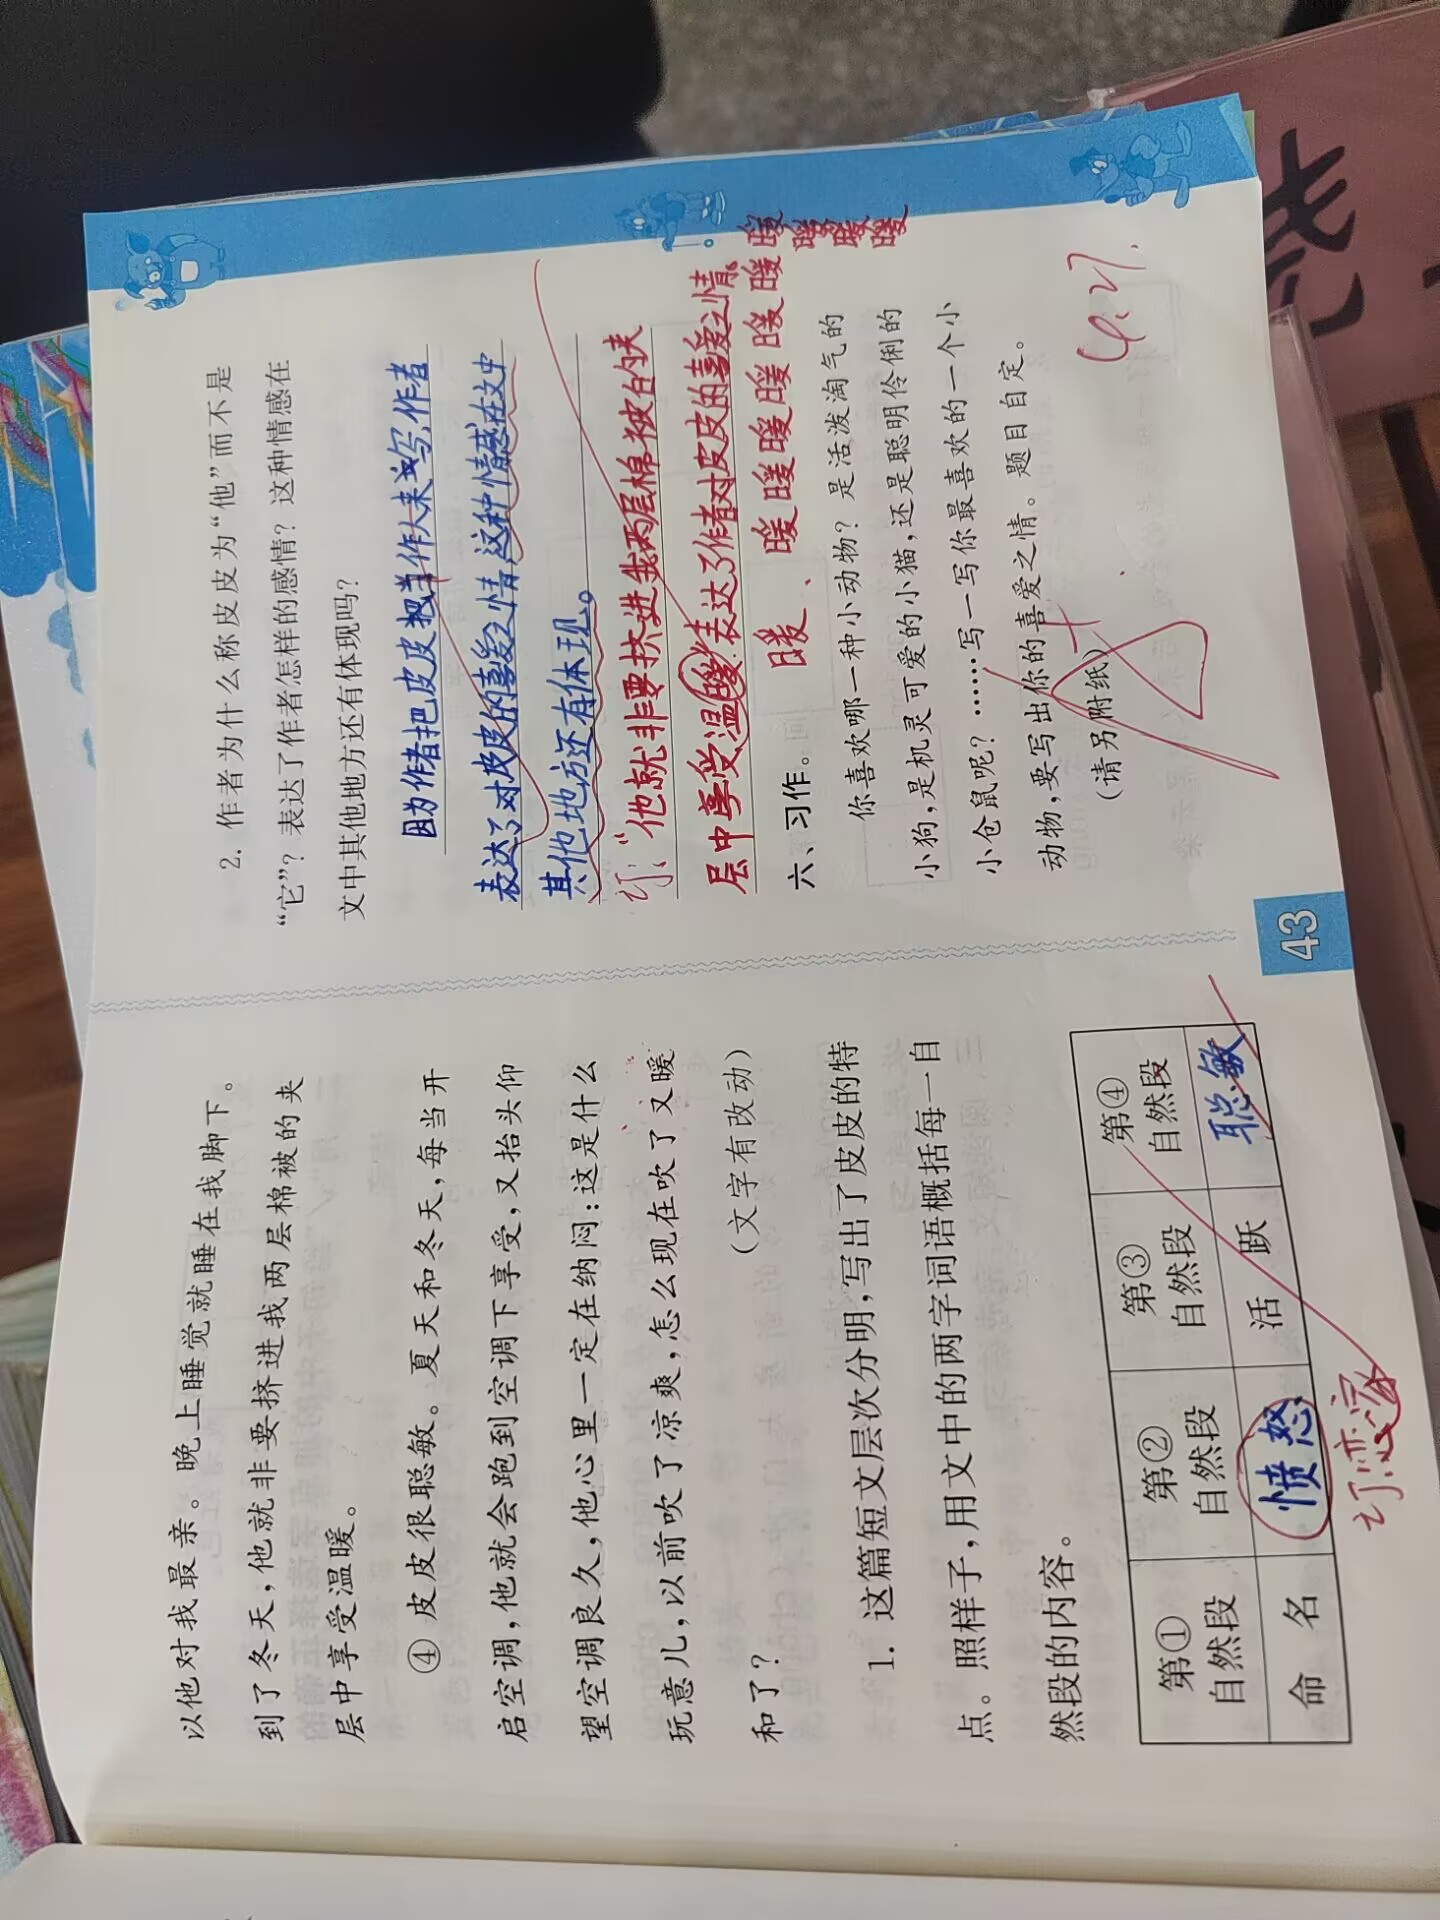 以他对我最亲。晚上睡觉就睡在我脚下。
到了冬天,他就非要挤进我两层棉被的夹
层中享受温暖。
④ 皮皮很聪敏。夏天和冬天,每当开
启空调,他就会跑到空调下享受,又抬头仰
望空调良久,他心里一定在纳闷:这是什么
玩意儿,以前吹了凉爽,怎么现在吹了又暖
和了?
(文字有改动)
1. 这篇短文层次分明,写出了皮皮的特
点。照样子,用文中的两字词语概括每一自
然段的内容。
第① 自然段 第② 自然段 第③ 自然段 第④ 自然段
命名 愤怒 活跃 聪敏
订:恋家
2. 作者为什么称皮皮为“他”而不是
“它”? 表达了作者怎样的感情? 这种情感在
文中其他地方还有体现吗?
因为作者把皮皮把当作人来写,作者
表达了对皮皮的喜爱之情,这种情感在文中
其他地方还有体现。
订:“他就非要挤进我两层棉被的夹
层中享受温暖”表达了作者对皮皮的喜爱之情。
暖 暖 暖 暖 暖 暖 暖
暖 暖 暖 暖
六、习作。
你喜欢哪一种小动物? 是活泼淘气的
小狗,是机灵可爱的小猫,还是聪明伶俐的
小仓鼠呢? ……写一写你最喜欢的一个小
动物,要写出你的喜爱之情。题目自定。
(请另附纸)
4.27.
43